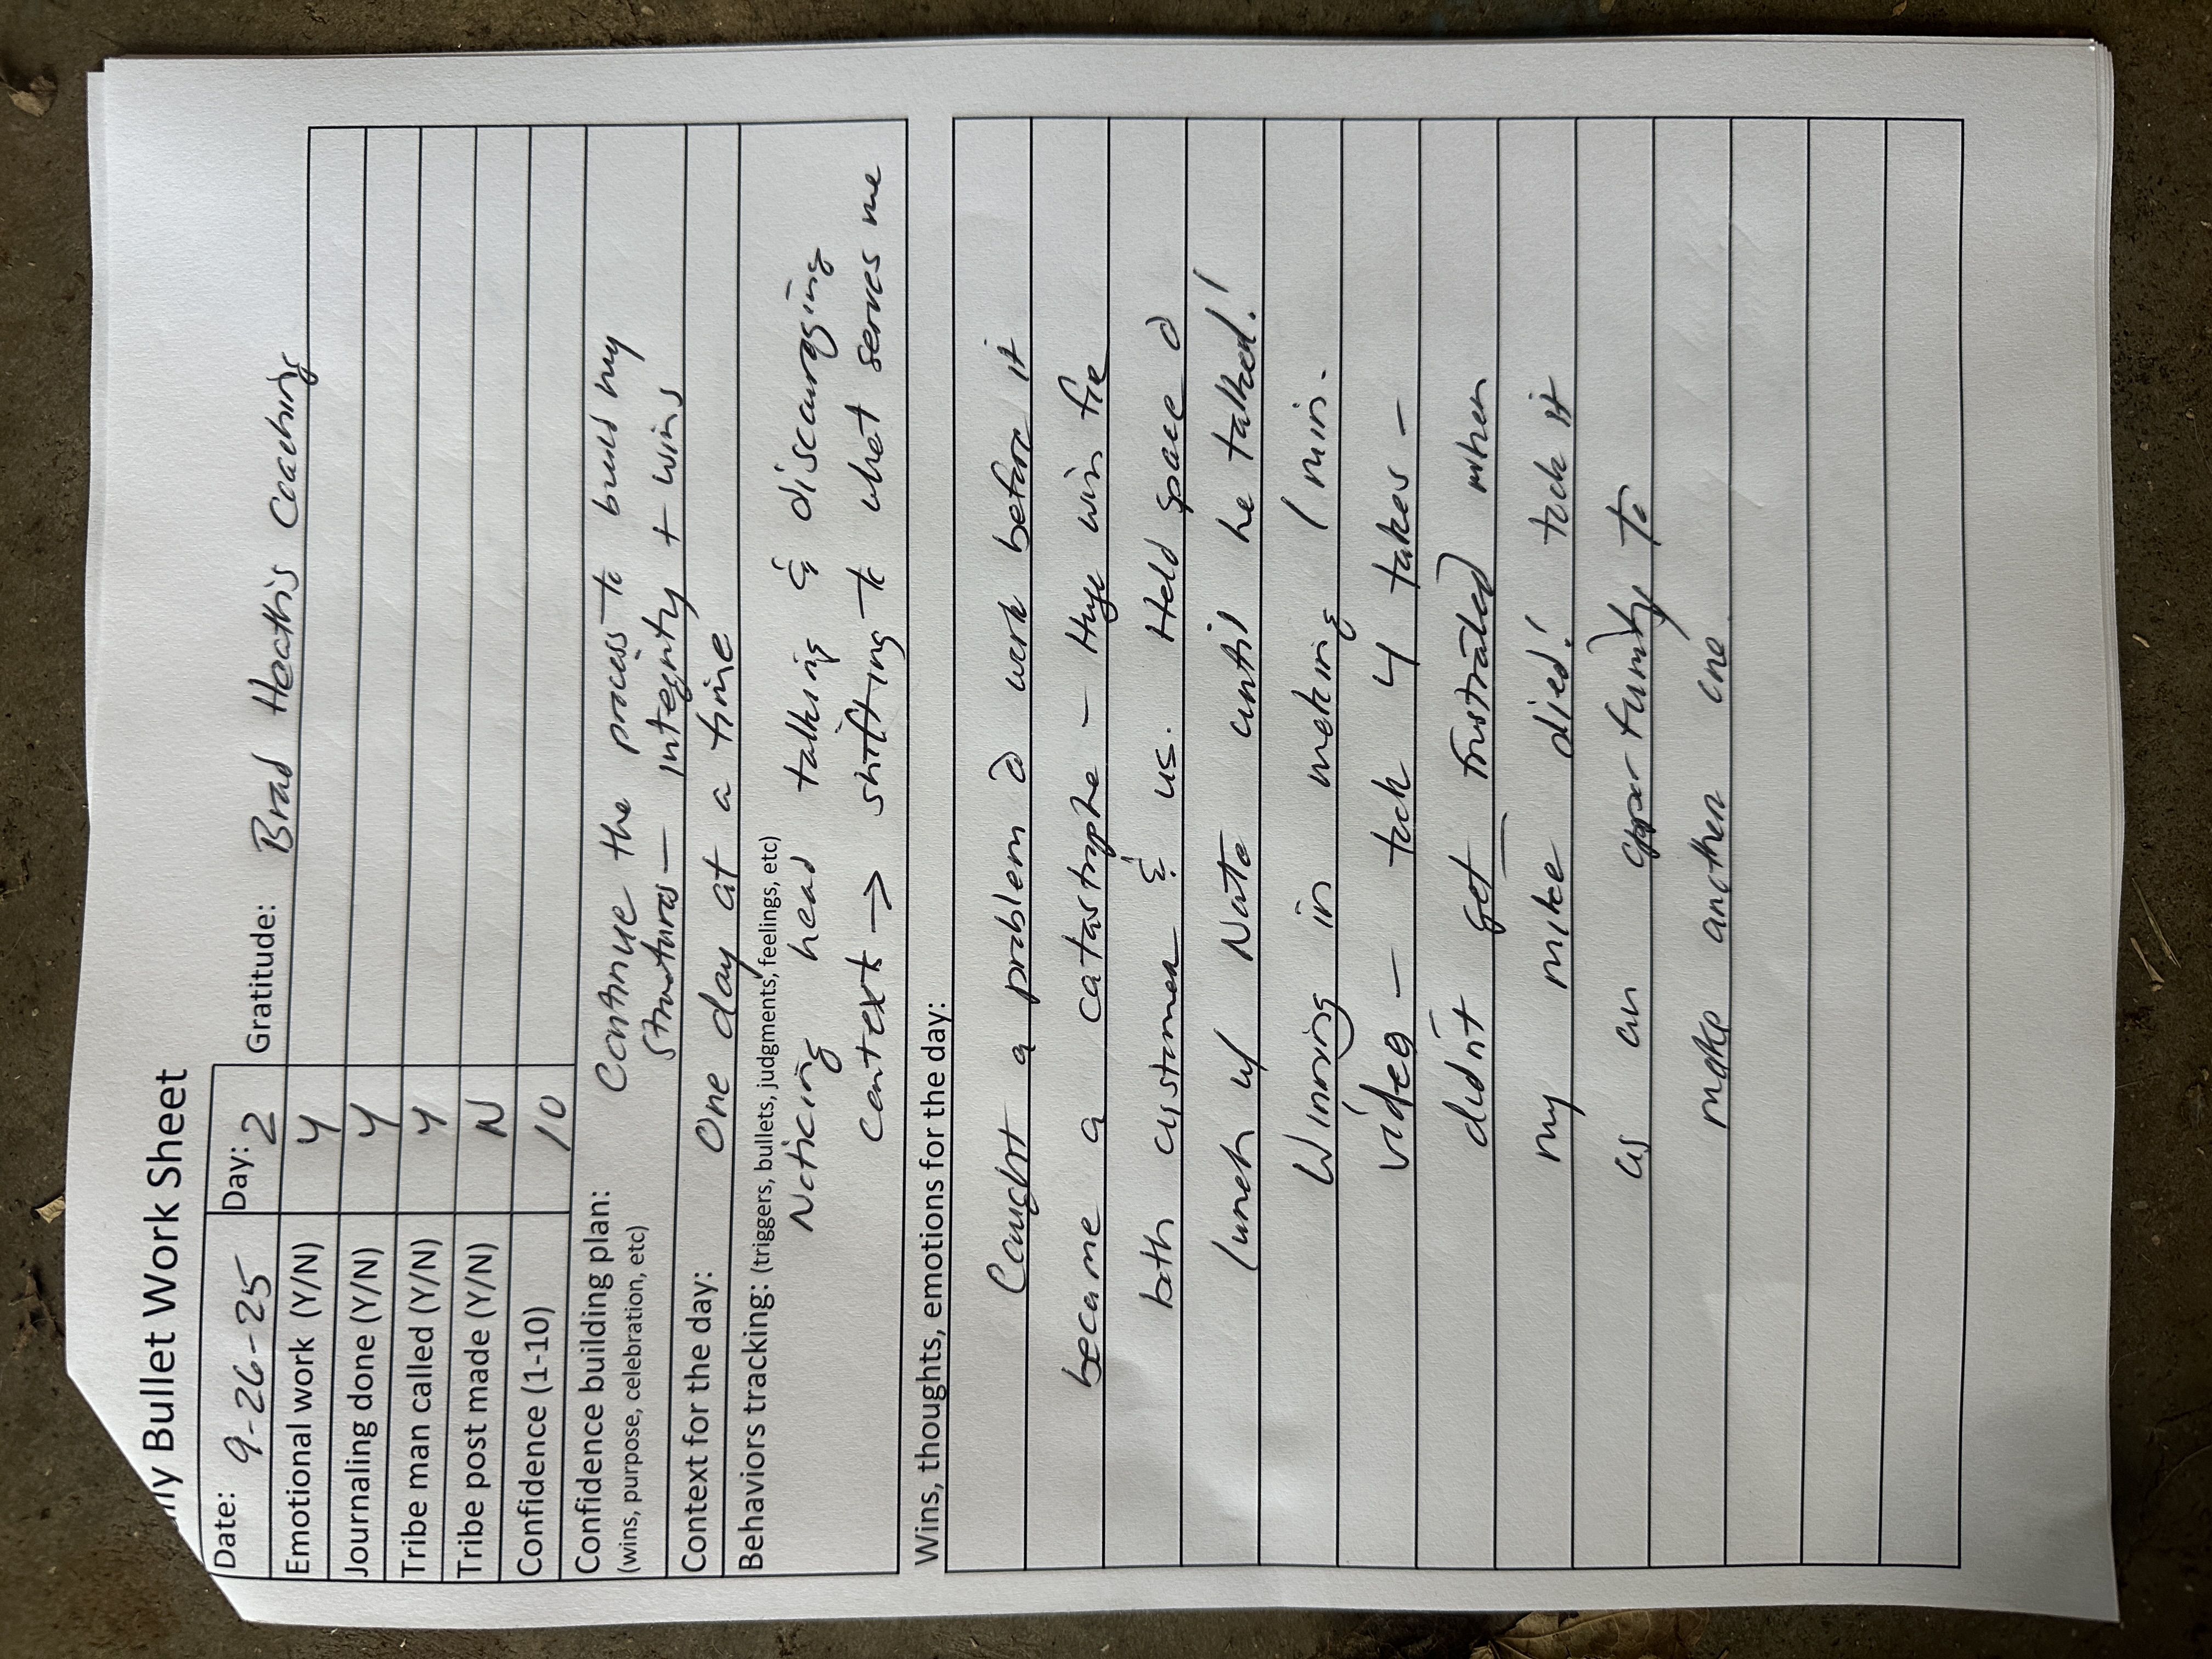 ily Bullet Work Sheet
Date: 9-26-25 Day: 2 Gratitude: Brad Heath's Coaching
Emotional work (Y/N) Y
Journaling done (Y/N) Y
Tribe man called (Y/N) Y
Tribe post made (Y/N) N
Confidence (1-10) 10
Confidence building plan: Continue the process to build my
(wins, purpose, celebration, etc) structures - integrity + wins
Context for the day: One day at a time
Behaviors tracking: (triggers, bullets, judgments, feelings, etc)
Noticing head talking & discouraging
context → shifting to what serves me
Wins, thoughts, emotions for the day:
Caught a problem @ work before it
became a catastrophe - Huge win for
both customer & us. Held space @
lunch w/ Nate until he talked!
Winning in making 1 min.
video - took 4 takes -
didn't get frustrated when
my mike died! took it
as an opportunity to
make another one